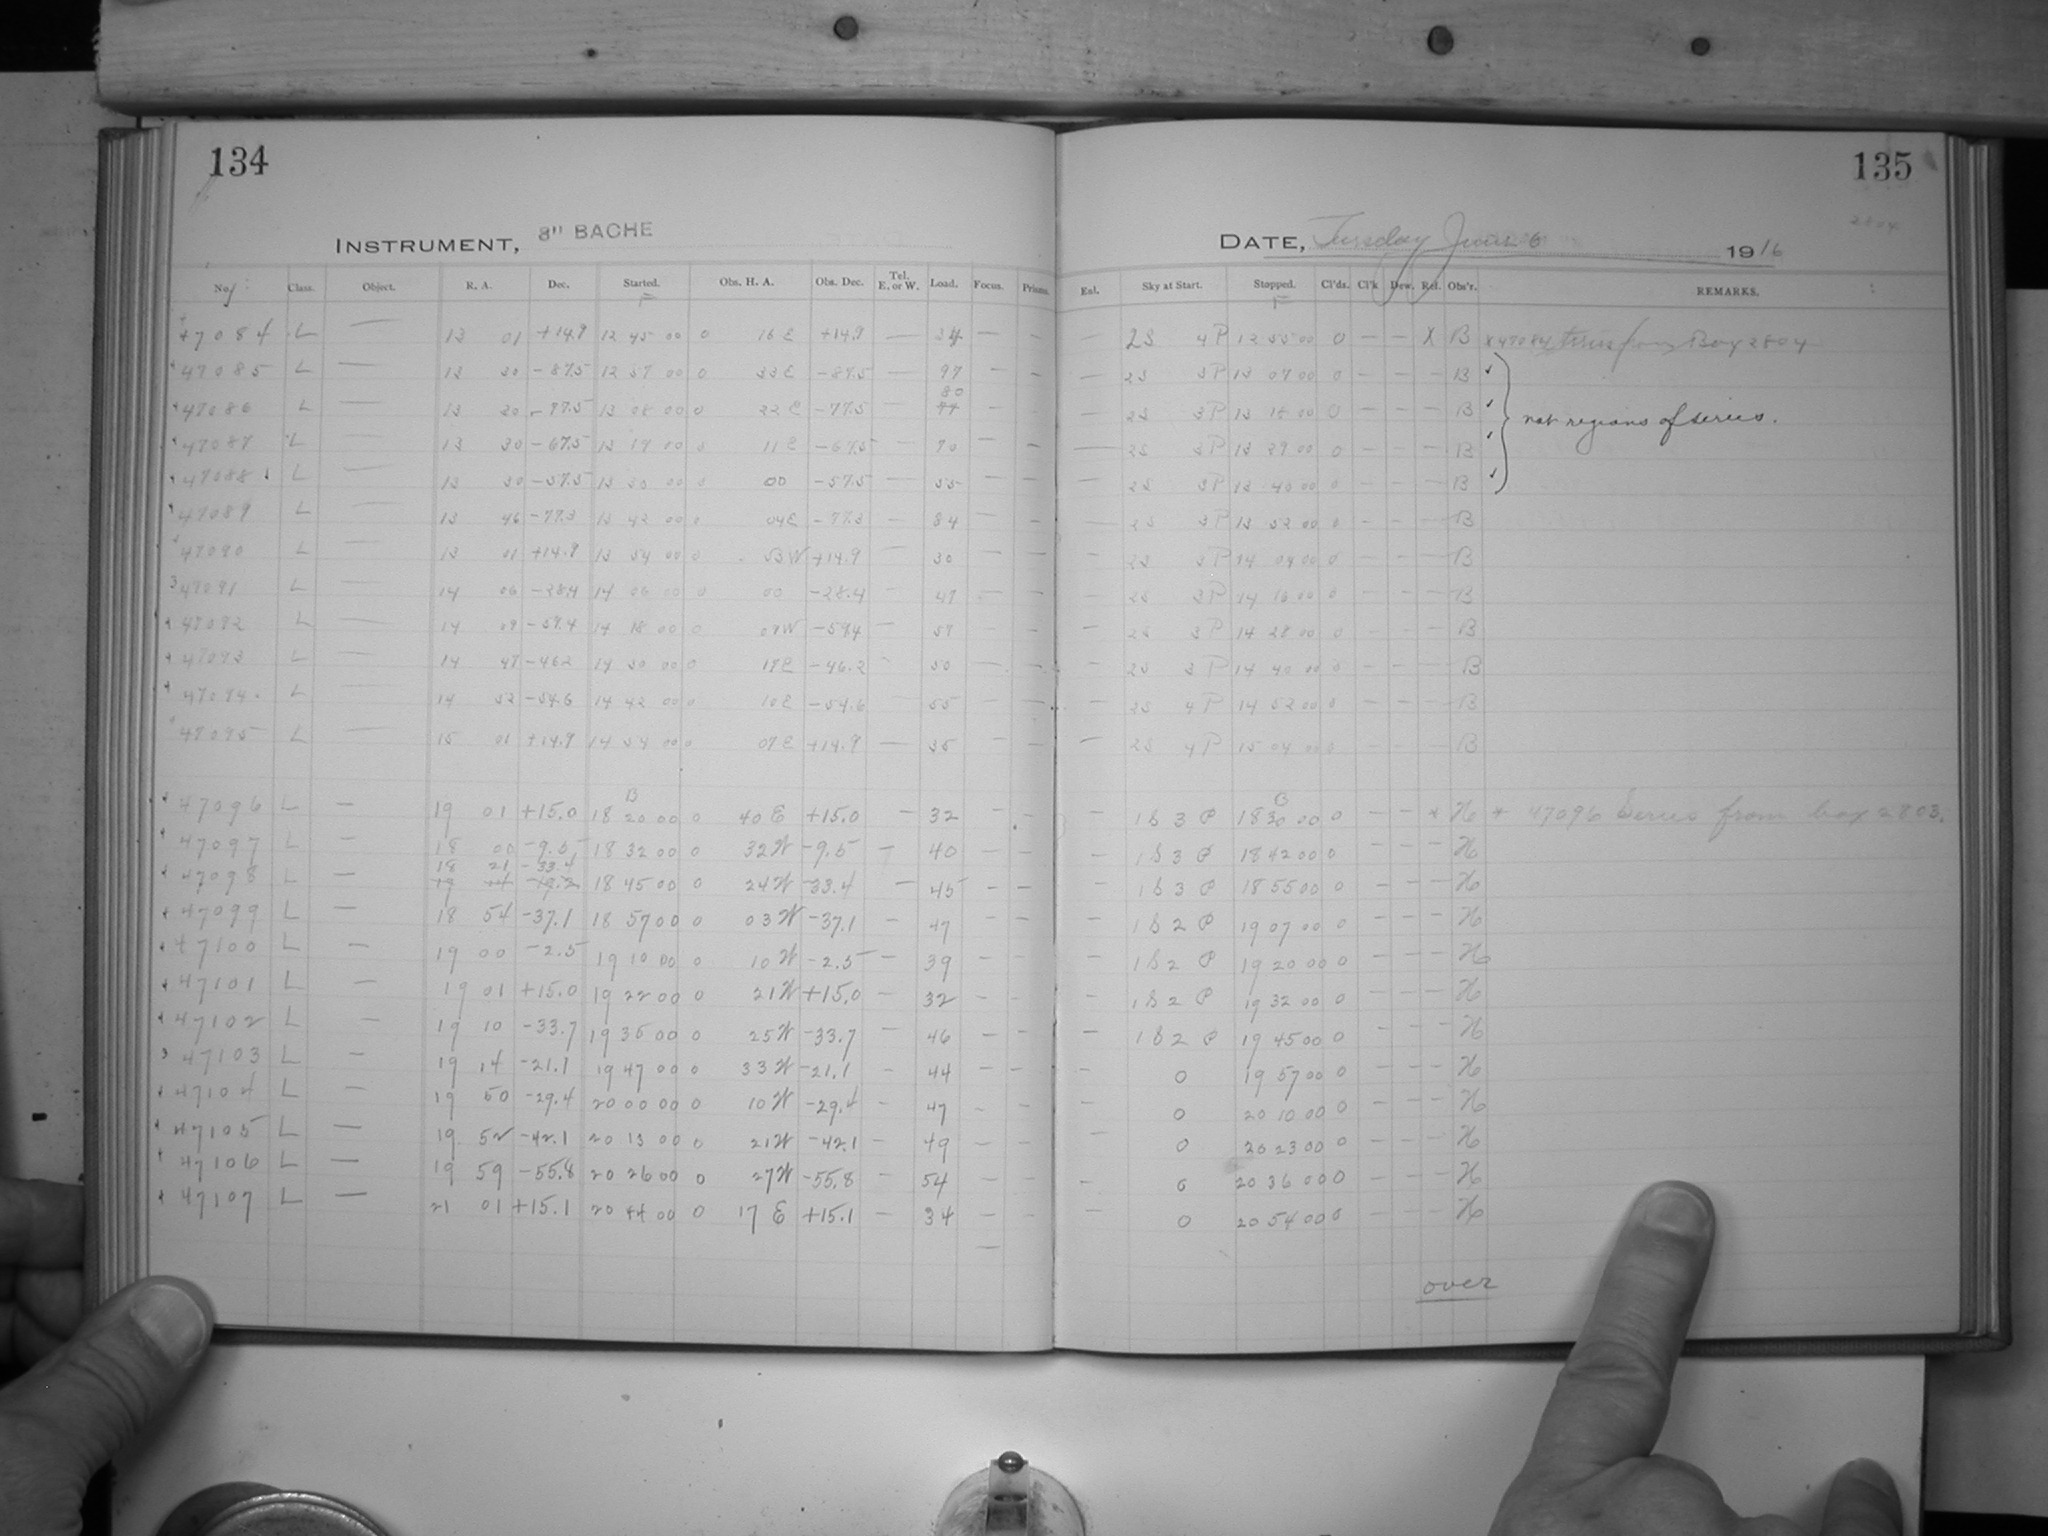 134
INSTRUMENT, 8" BACHE
No. Class. Object. R. A. Dec. Started. Obs. H. A. Obs. Dec. Tel. E. or W. Load. Focus. Prisms.
47084 L — 13 01 +14.9 12 45 00 0 16 E +14.9 — 34 — —
47085 L — 13 30 -87.5 12 57 00 0 33 E -87.5 — 97 — —
47086 L — 13 30 -77.5 13 08 00 0 22 E -77.5 — 80 — —
47087 L — 13 30 -67.5 13 19 00 0 11 E -67.5 — 70 — —
47088 L — 13 30 -57.5 13 30 00 0 00 -57.5 — 55 — —
47089 L — 13 46 -77.3 13 42 00 0 04 E -77.3 — 84 — —
47090 L — 13 01 +14.9 13 54 00 0 53 W +14.9 — 30 — —
47091 L — 14 06 -28.4 14 06 00 0 00 -28.4 — 47 — —
47092 L — 14 09 -59.4 14 18 00 0 09 W -59.4 — 57 — —
47093 L — 14 47 -46.2 14 30 00 0 17 E -46.2 — 50 — —
47094 L — 14 52 -54.6 14 42 00 0 10 E -54.6 — 55 — —
47095 L — 15 01 +14.9 14 54 00 0 07 E +14.9 — 35 — —
B
47096 L — 19 01 +15.0 18 20 00 0 40 E +15.0 — 32 — —
47097 L — 18 00 -9.5 18 32 00 0 32 W -9.5 — 40 — —
18 21 -33.4
47098 L — 18 45 00 0 24 W -33.4 — 45 — —
47099 L — 18 54 -37.1 18 57 00 0 03 W -37.1 — 47 — —
47100 L — 19 00 -2.5 19 10 00 0 10 W -2.5 — 39 — —
47101 L — 19 01 +15.0 19 22 00 0 21 W +15.0 — 32 — —
47102 L — 19 10 -33.7 19 35 00 0 25 W -33.7 — 46 — —
47103 L — 19 14 -21.1 19 47 00 0 33 W -21.1 — 44 — —
47104 L — 19 50 -29.4 20 00 00 0 10 W -29.4 — 47 — —
47105 L — 19 52 -42.1 20 13 00 0 21 W -42.1 — 49 — —
47106 L — 19 59 -55.8 20 26 00 0 27 W -55.8 — 54 — —
47107 L — 21 01 +15.1 20 44 00 0 17 E +15.1 — 34 — —
135
2804
DATE, Tuesday June 6 1916
Enl. Sky at Start. Stopped. Cl'ds. Cl'k Dew. Ref. Obs'r. REMARKS.
— 2S 4P 12 55 00 0 — — X B x 47084 Box 2804
— 2S 3P 13 07 00 0 — — — B
— 2S 3P 13 18 00 0 — — — B not regions of series.
— 2S 3P 13 29 00 0 — — — B
— 2S 3P 13 40 00 0 — — — B
— 2S 3P 13 52 00 0 — — — B
— 2S 3P 14 04 00 0 — — — B
— 2S 3P 14 16 00 0 — — — B
— 2S 3P 14 28 00 0 — — — B
— 2S 3P 14 40 00 0 — — — B
— 2S 4P 14 52 00 0 — — — B
— 2S 4P 15 04 00 0 — — — B
B
— 1S 3P 18 30 00 0 — — * H * 47096 Series from box 2803.
— 1S 3P 18 42 00 0 — — — H
— 1S 3P 18 55 00 0 — — — H
— 1S 2P 19 07 00 0 — — — H
— 1S 2P 19 20 00 0 — — — H
— 1S 2P 19 32 00 0 — — — H
— 1S 2P 19 45 00 0 — — — H
— 0 19 57 00 0 — — — H
— 0 20 10 00 0 — — — H
— 0 20 23 00 0 — — — H
— 0 20 36 00 0 — — — H
0 20 54 00 0 — — — H
over